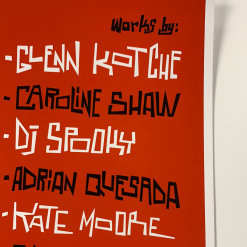 Works by:
- GLENN KOTCHE
- CAROLINE SHAW
- DJ SPOOKY
- ADRIAN QUESADA
- KATE MOORE